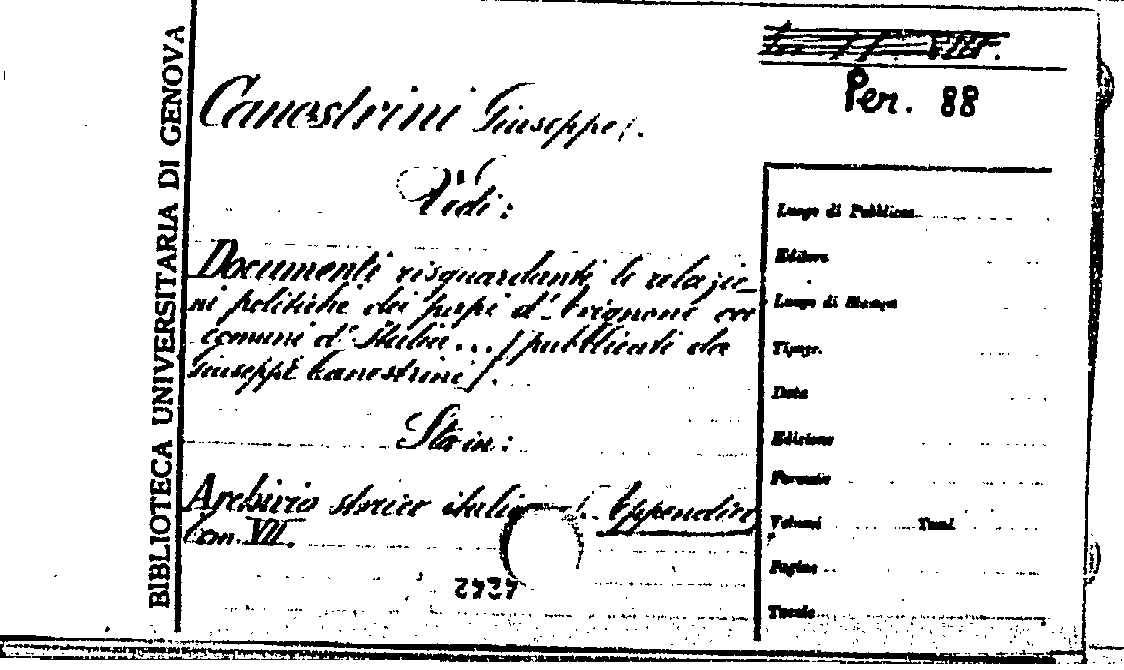 BIBLIOTECA UNIVERSITARIA DI GENOVA
Per. 88
Canestrini Giuseppe.
Vedi:
Documenti risguardanti le relazio-
ni politiche dei papi d'Avignone coi
comuni d'Italia... / pubblicati da
Giuseppe Canestrini /.
Sta in:
Archivio storico italiano. Appendice
Tom. VII.
2424
Luogo di Pubblicaz.
Editore
Luogo di Stampa
Tipogr.
Data
Edizione
Formato
Volumi Tomi
Pagine
Tavole